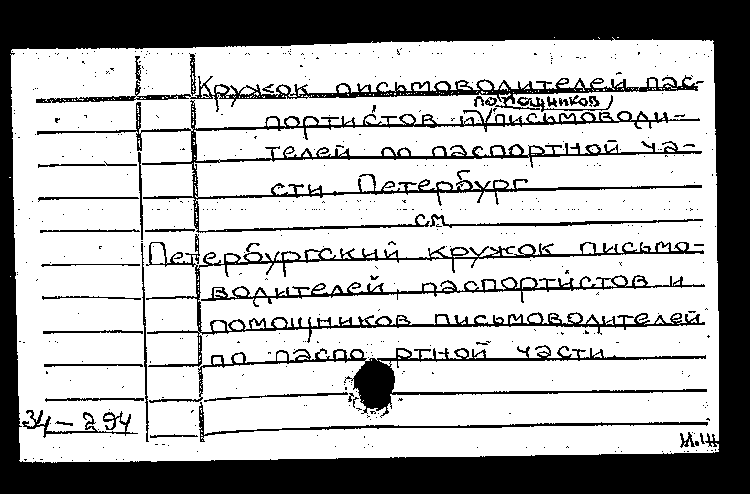 Кружок письмоводителей пас-
помощников
портистов и письмоводи-
телей по паспортной ча-
сти. Петербург
см.
Петербургский кружок письмо-
водителей, паспортистов и
помощников письмоводителей
по паспортной части.
34-294
И.Ш